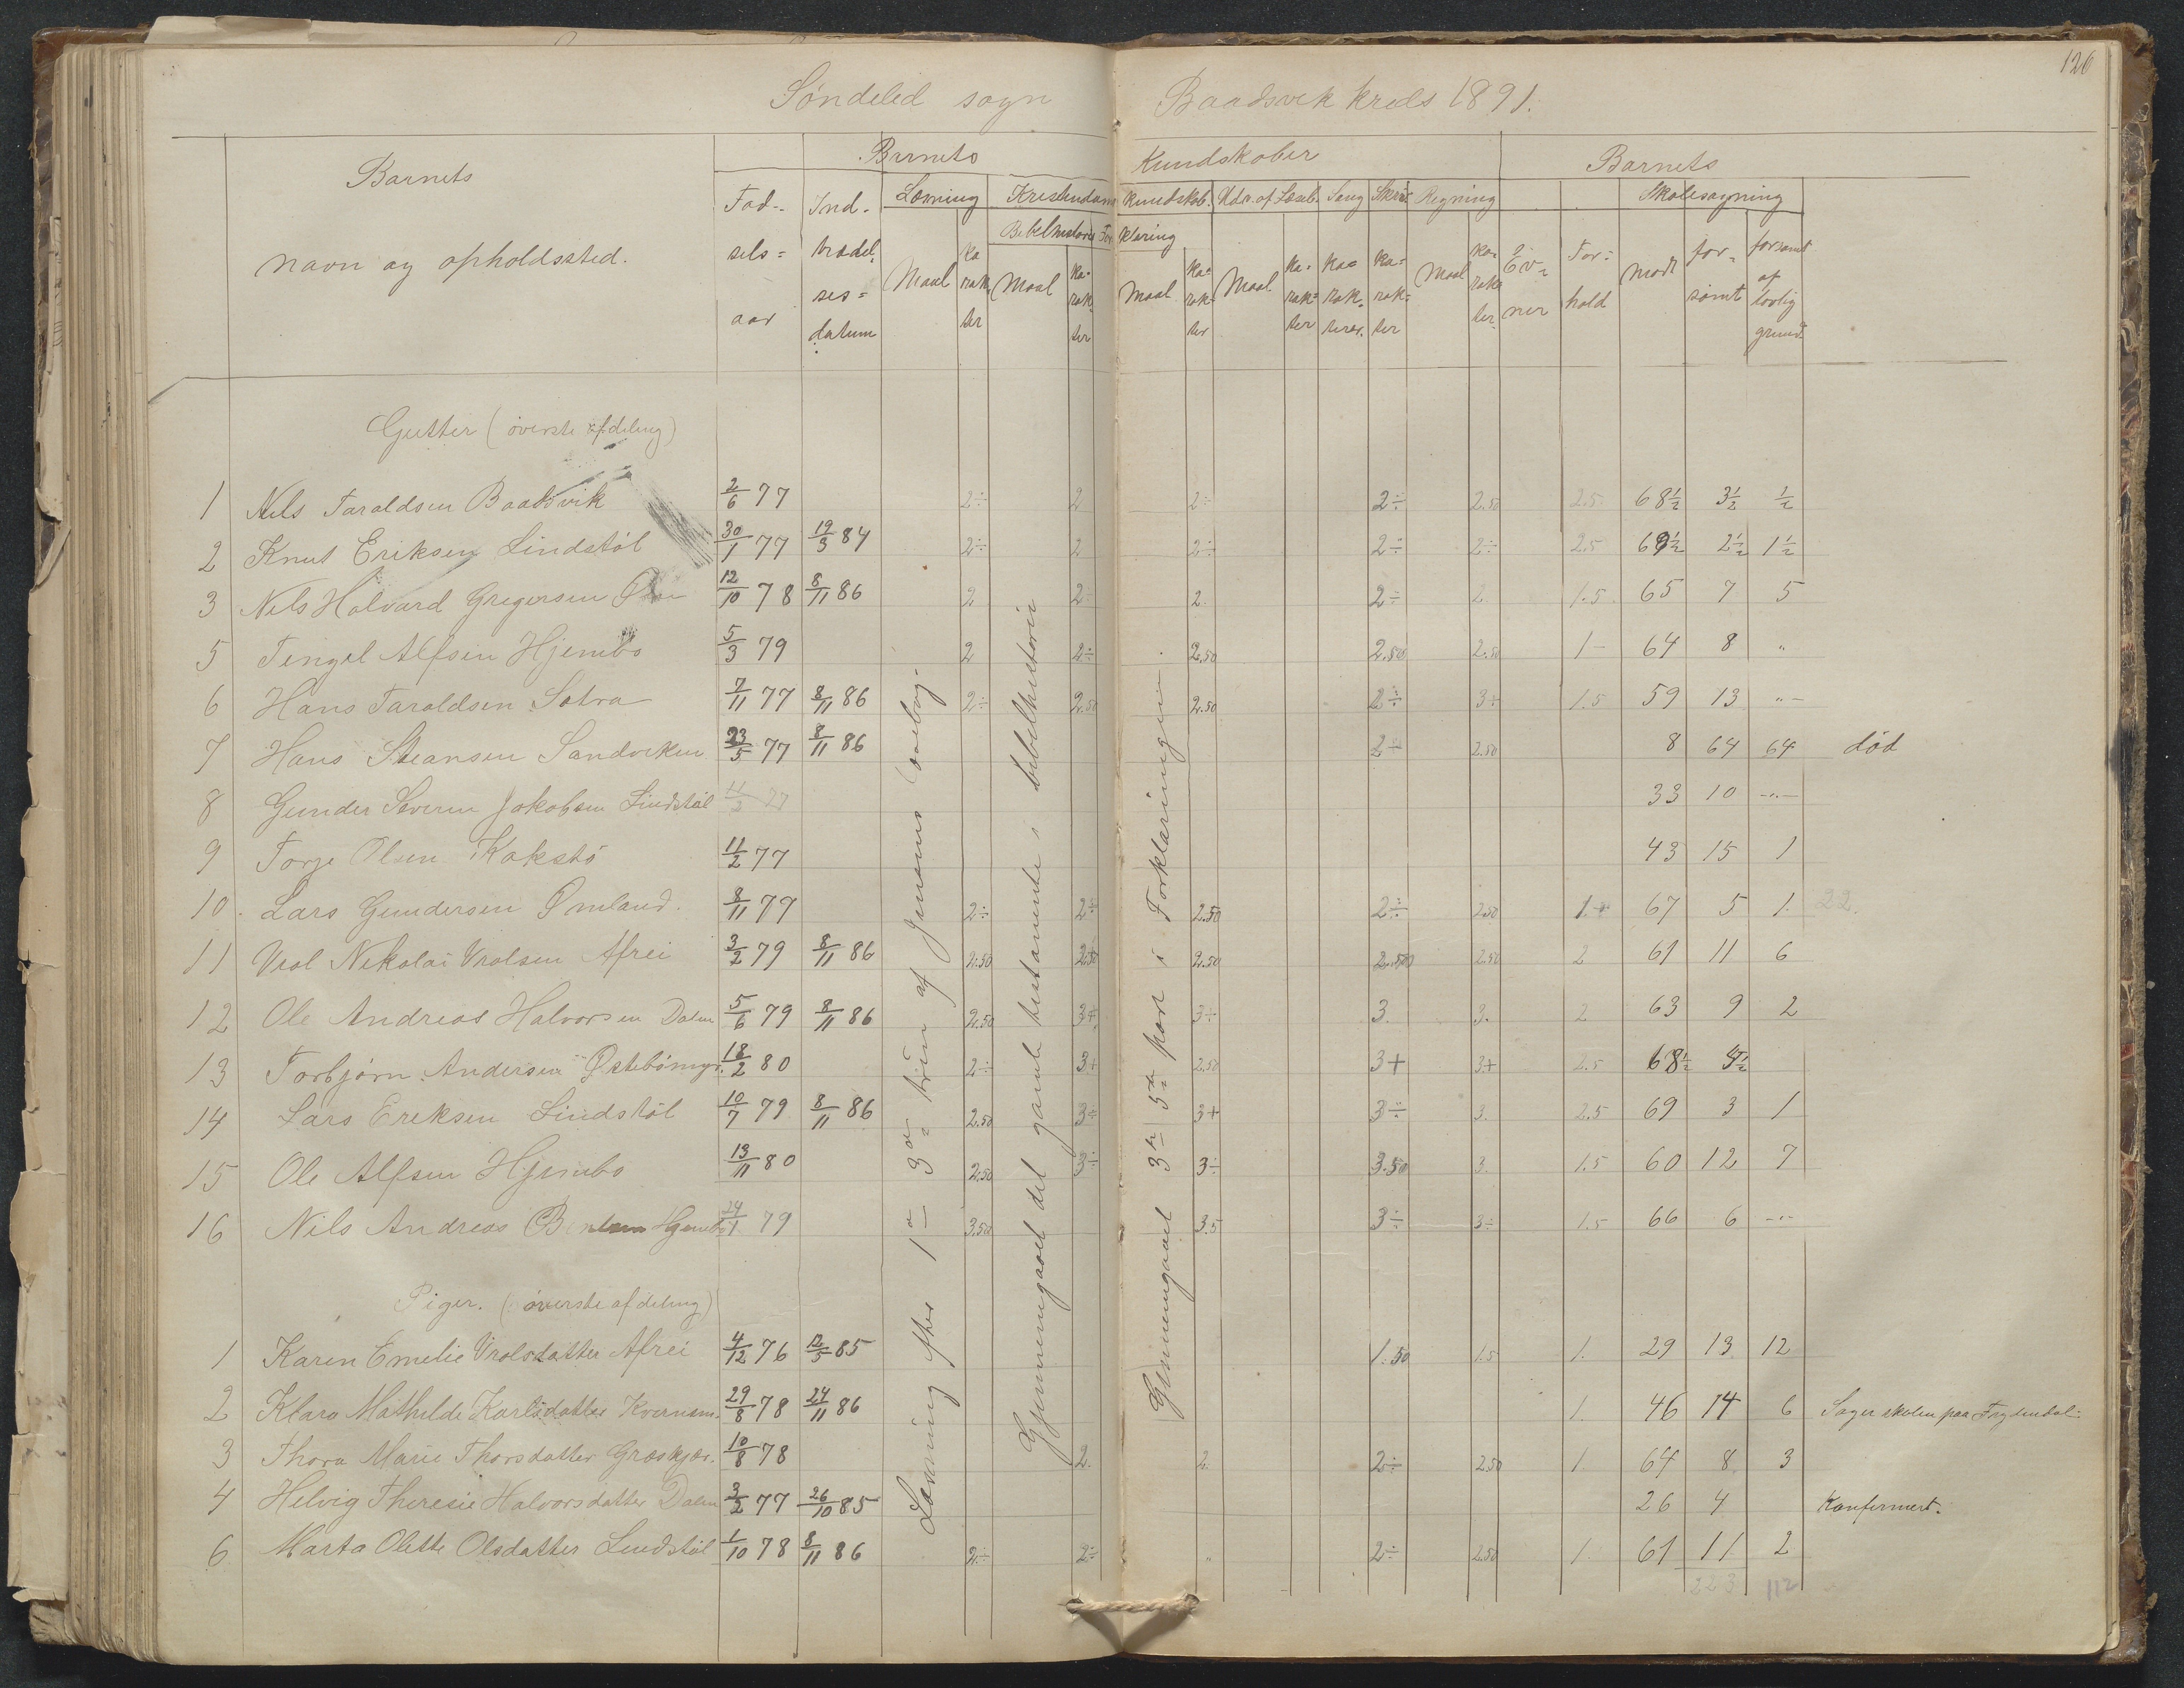 126
Söndeled sogn Baadsvik kreds 1891.
Barnets Kundskaber Barnets
Barnets navn og opholdssted.
Födselsaar Indtrædelsesdatum Læsning Kristendomskundskab. Udv. af Læseb. Sang Skriv. Regning Evner Forhold Skolesøgning
Bibelhistorie Forklaring
Maal karakter Maal karakter Maal karakter Maal karakter karakter karakter Maal karakter mödt forsömt forsömt af lovlig grund
Gutter (överste afdeling)
1 Nils Taraldsen Baadsvik 2/6 77 2÷ 2 2÷ 2÷ 2.50 2.5 68½ 3½ ½
2 Knut Eriksen Lindstöl 30/1 77 19/3 84 2÷ 2 2÷ 2÷ 2÷ 2.5 69½ 2½ 1½
3 Nils Halvard Gregersen 12/10 78 8/11 86 2 2÷ 2. 2÷ 2. 1.5 65 7 5
5 Tengel Alfsen Hjembo 5/3 79 2 2÷ 2.50 2.50 2.50 1- 64 8 "
6 Hans Taraldsen Sotra 7/11 77 8/11 86 2÷ 2.50 2.50 2÷ 3+ 1.5 59 13 "-
7 Hans Steansen Sandviken 23/5 77 8/11 86 2÷ 2.50 8 64 64 död
8 Gunder Severin Jakobsen Lindstöl 11/2 77 33 10 -"-
9 Torje Olsen Kokstö 11/2 77 43 15 1
10. Lars Gundersen Ømland. 8/11 79 2÷ 2÷ 2.50 2÷ 2.50 1.+ 67 5 1. 22.
11 Vrol Nikolai Vrolsen Afrei 3/2 79 8/11 86 2.50 2.50 2.50 2.50 2.50 2 61 11 6
12 Ole Andreas Halvorsen Dalen 5/6 79 8/11 86 2.50 3+ 3÷ 3. 3. 2 63 9 2
13 Torbjörn Andersen Østebömyr. 18/2 80 2÷ 3+ 2.50 3+ 3+ 2.5 68½ 4½
14 Lars Eriksen Lindstöl 10/7 79 8/11 86 2.50 3÷ 3+ 3÷ 3. 2.5 69 3 1
15 Ole Alfsen Hjembo 13/11 80 2.50 3÷ 3÷ 3.50 3. 1.5 60 12 7
16 Nils Andreas Hjembo 24/1 79 3.50 3.5 3÷ 3÷ 1.5 66 6 -"-
Piger. (överste afdeling)
1 Karen Emelie Vrolsdatter Afrei 4/12 76 12/5 85 1.50 1.5 1. 29 13 12
2 Klara Mathilde Karlsdatter Kvernsm. 29/8 78 24/11 86 1. 46 14 6 Søger skolen paa Frydendal.
3 Thora Marie Thorsdatter Græskjær. 10/8 78 2. 2. 2÷ 2.50 1. 64 8 3
4 Helvig Theresie Halvorsdatter Dalen 3/2 77 26/10 85 26 4 Konfirmert.
6 Marta Olette Olsdatter Lindstöl 1/10 78 8/11 86 2÷ 2÷ " 2÷ 2.50 1. 61 11 2
223 112
Læsning efter 1ste 3die trin af Jensens læsebog.
Gjennemgaaet det gamle testamente i bibelhistorien
Gjennemgaaet 3die 5te part i Forklaringen.